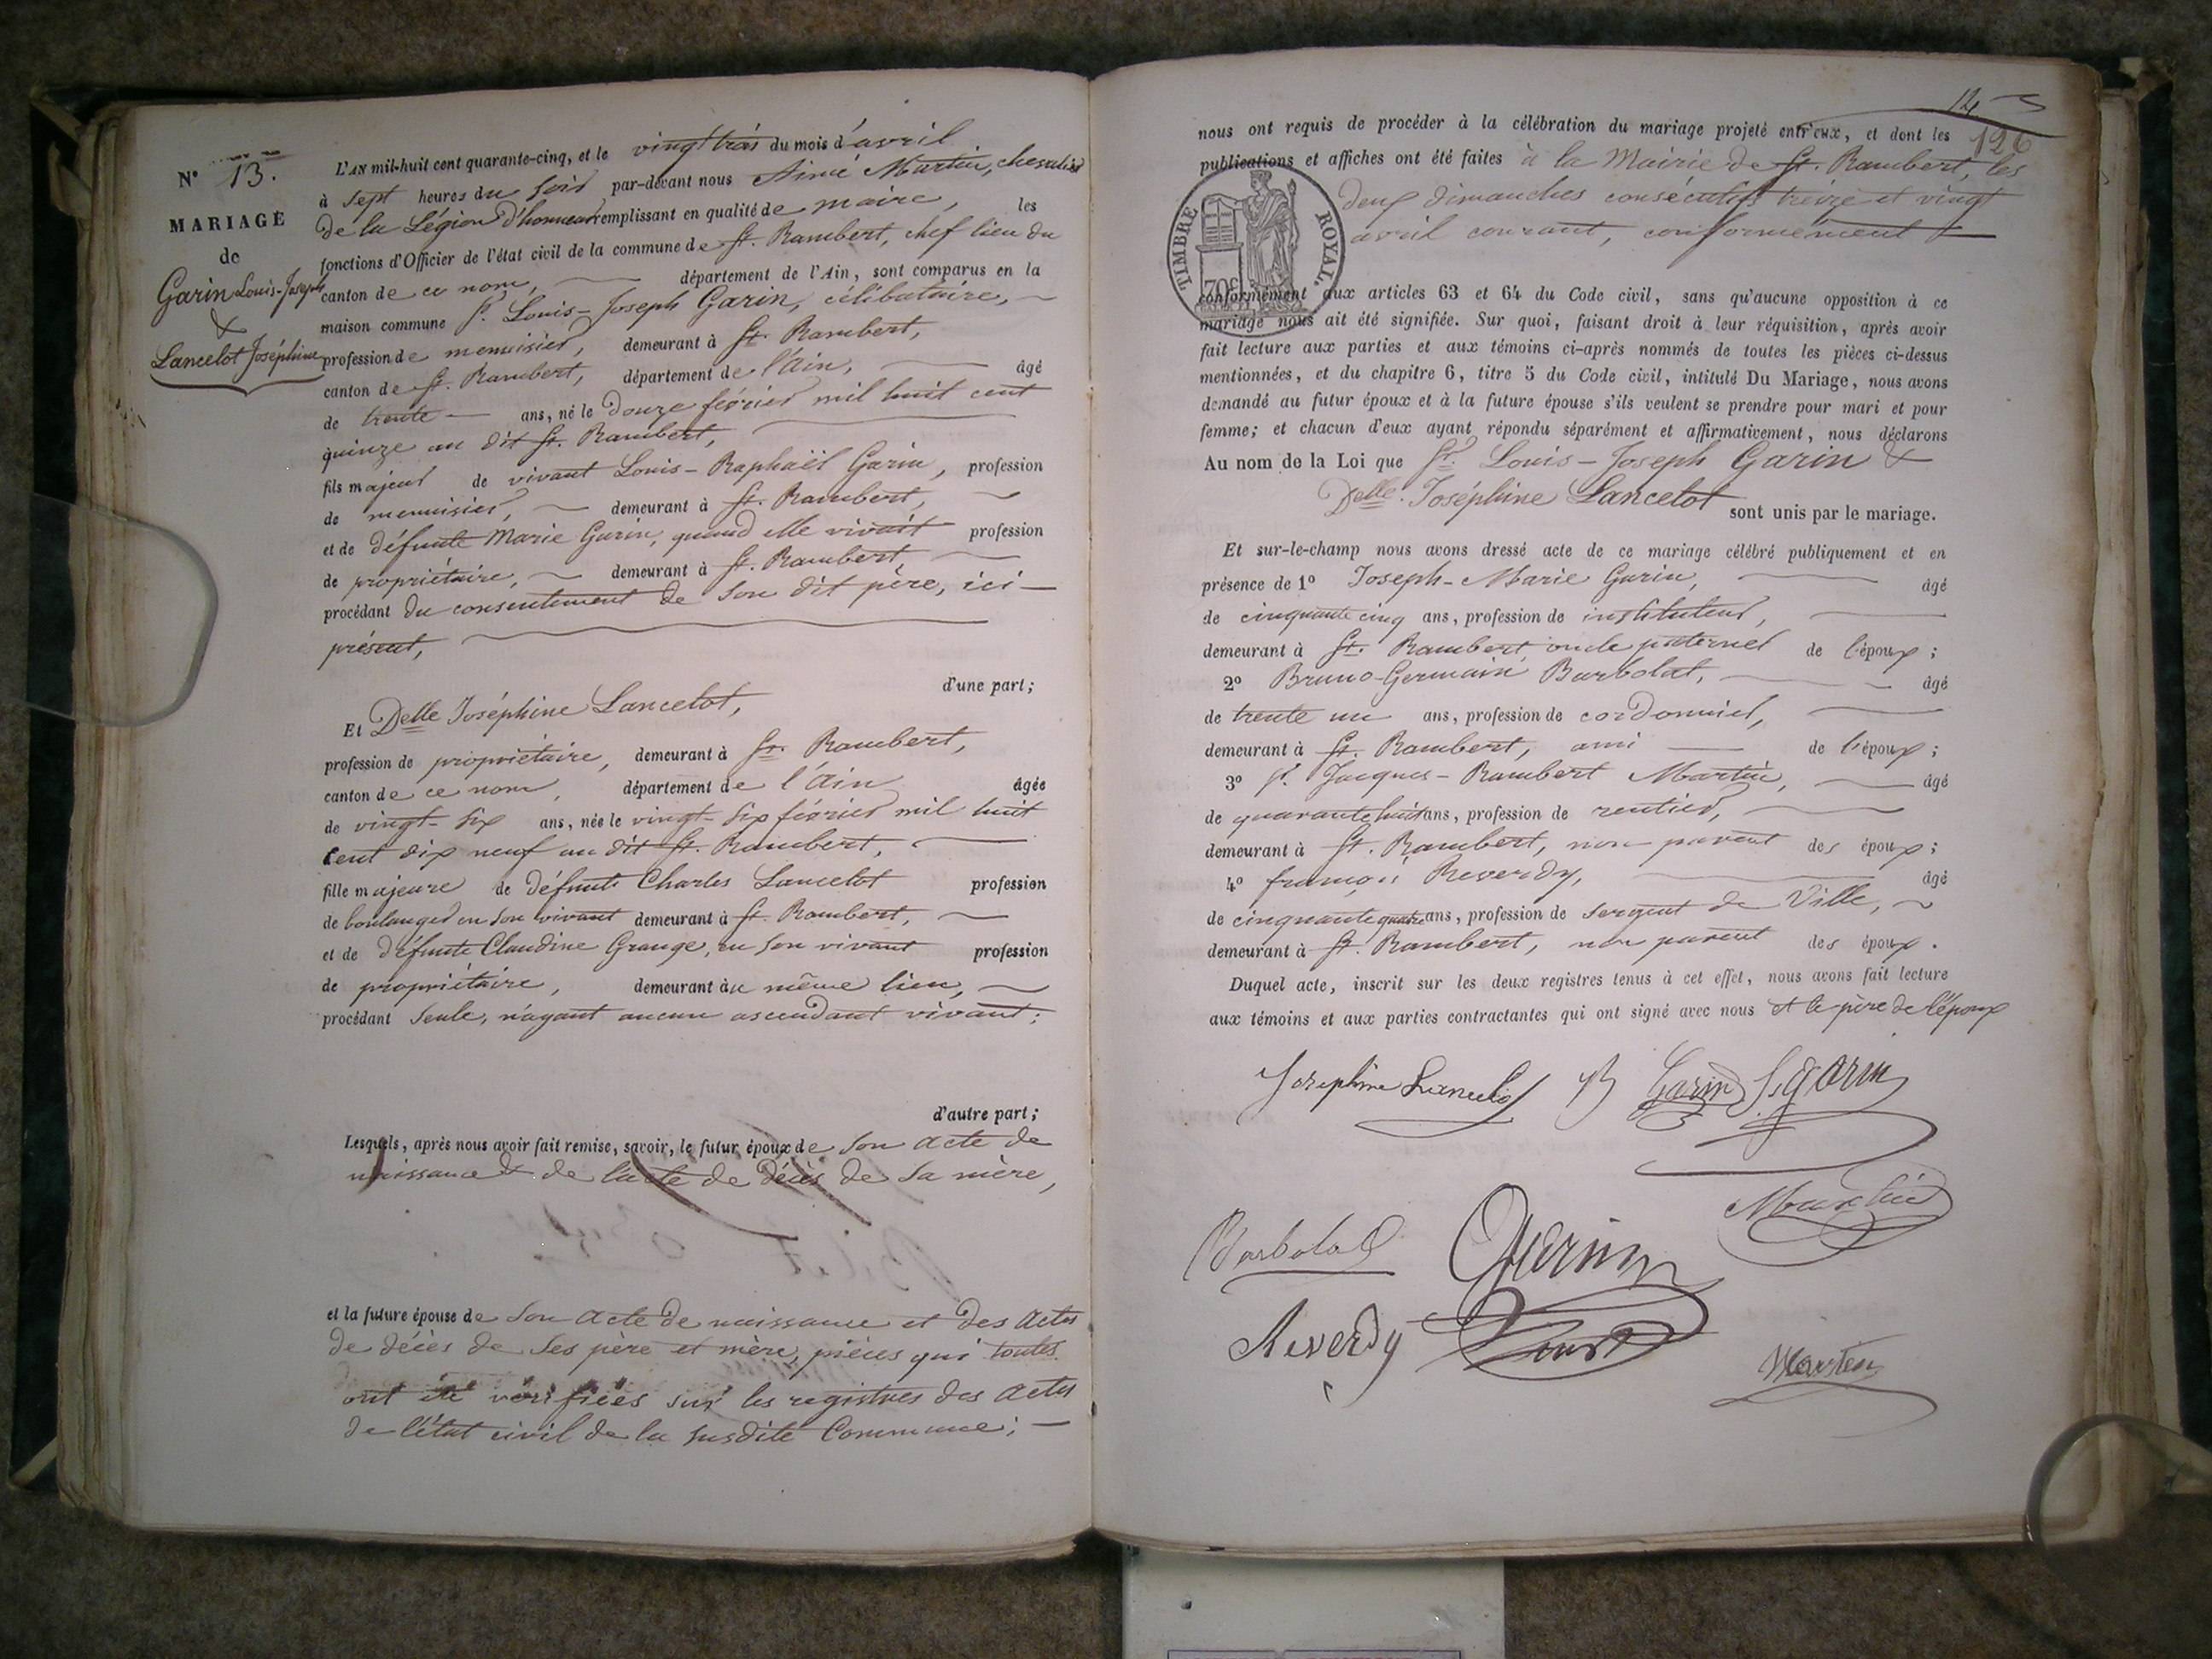 N° 13.
MARIAGE
de
Garin Louis-Joseph
&
Lancelot Joséphine
L'AN mil-huit cent quarante-cinq, et le vingt trois du mois d'avril
à sept heures du soir par-devant nous Aimé Martin, chevalier
de la Légion d'honneur remplissant en qualité de maire, les
fonctions d'Officier de l'état civil de la commune de St. Rambert, chef lieu du
canton de ce nom, département de l'Ain, sont comparus en la
maison commune Sr. Louis-Joseph Garin, célibataire,
profession de menuisier, demeurant à St. Rambert,
canton de St. Rambert, département de l'Ain, âgé
de trente ans, né le douze février mil huit cent
quinze au dit St. Rambert,
fils majeur de vivant Louis-Raphaël Garin, profession
de menuisier, demeurant à St. Rambert,
et de défunte Marie Garin, quand elle vivait profession
de propriétaire, demeurant à St. Rambert
procédant du consentement de son dit père, ici
présent,
d'une part;
Et Delle Joséphine Lancelot,
profession de propriétaire, demeurant à St. Rambert,
canton de ce nom, département de l'Ain âgée
de vingt-six ans, née le vingt-six février mil huit
cent dix neuf au dit St. Rambert,
fille majeure de défunt Charles Lancelot profession
de boulanger en son vivant demeurant à St. Rambert,
et de défunte Claudine Grange, en son vivant profession
de propriétaire, demeurant au même lieu,
procédant seule, n'ayant aucun ascendant vivant;
d'autre part;
Lesquels, après nous avoir fait remise, savoir, le futur époux de son acte de
naissance & de l'acte de décès de sa mère,
et la future épouse de son acte de naissance et des actes
de décès de ses père et mère, pièces qui toutes
ont été vérifiées sur les registres des actes
de l'état civil de la susdite Commune;
14
126
nous ont requis de procéder à la célébration du mariage projeté entr'eux, et dont les
publications et affiches ont été faites à la Mairie de St. Rambert, les
deux dimanches consécutifs treize et vingt
avril courant, conformément
TIMBRE ROYAL.
70c
conformément aux articles 63 et 64 du Code civil, sans qu'aucune opposition à ce
mariage nous ait été signifiée. Sur quoi, faisant droit à leur réquisition, après avoir
fait lecture aux parties et aux témoins ci-après nommés de toutes les pièces ci-dessus
mentionnées, et du chapitre 6, titre 5 du Code civil, intitulé Du Mariage, nous avons
demandé au futur époux et à la future épouse s'ils veulent se prendre pour mari et pour
femme; et chacun d'eux ayant répondu séparément et affirmativement, nous déclarons
Au nom de la Loi que Sr. Louis-Joseph Garin &
Delle. Joséphine Lancelot sont unis par le mariage.
Et sur-le-champ nous avons dressé acte de ce mariage célébré publiquement et en
présence de 1° Joseph-Marie Garin, âgé
de cinquante cinq ans, profession de instituteur,
demeurant à St. Rambert oncle paternel de l'époux;
2° Bruno-Germain Barbolat, âgé
de trente un ans, profession de cordonnier,
demeurant à St. Rambert, ami de l'époux;
3° Sr. Jacques-Rambert Martin, âgé
de quarante huit ans, profession de rentier,
demeurant à St. Rambert, non parent des époux;
4° françois Reverdy, âgé
de cinquante quatre ans, profession de sergent de Ville,
demeurant à St. Rambert, non parent des époux.
Duquel acte, inscrit sur les deux registres tenus à cet effet, nous avons fait lecture
aux témoins et aux parties contractantes qui ont signé avec nous et le père de l'époux
Josephine Lancelot Garin Garin
Martin
Barbolat
Reverdy
Martin